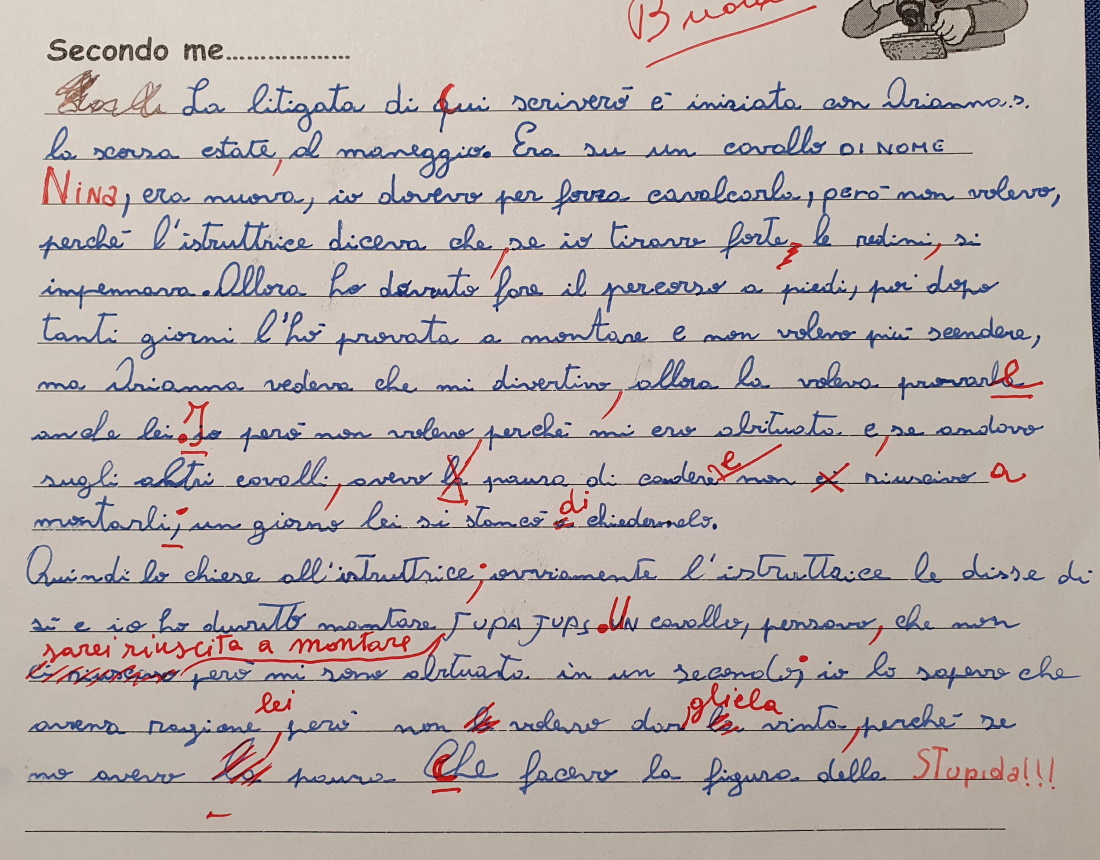 Secondo me..................
La litigata di cui scriverò è iniziata con Arianna S.
la scorsa estate, al maneggio. Era su un cavallo DI NOME
NINA, era nuova, io dovevo per forza cavalcarla, però non volevo,
perché l'istruttrice diceva che, se io tiravo forte le redini, si
impennava. Allora ho dovuto fare il percorso a piedi, poi dopo
tanti giorni l'hò provata a montare e non volevo più scendere,
ma Arianna vedeva che mi divertivo, allora la voleva provare
anche lei. Io però non volevo, perché mi ero abituata e, se andavo
sugli altri cavalli, avevo paura di cadere e non riuscivo a
montarli; un giorno lei si stancò di chiedermelo.
Quindi lo chiese all'istruttrice; ovviamente l'istruttrice le disse di
sì e io ho dovuto montare JUPA JUPS. UN cavallo, pensavo, che non
sarei riuscita a montare
però mi sono abituata in un secondo; io lo sapevo che
lei gliela
aveva ragione, però non volevo dar vinta, perché se
no avevo paura che facevo la figura della STUPIDA!!!